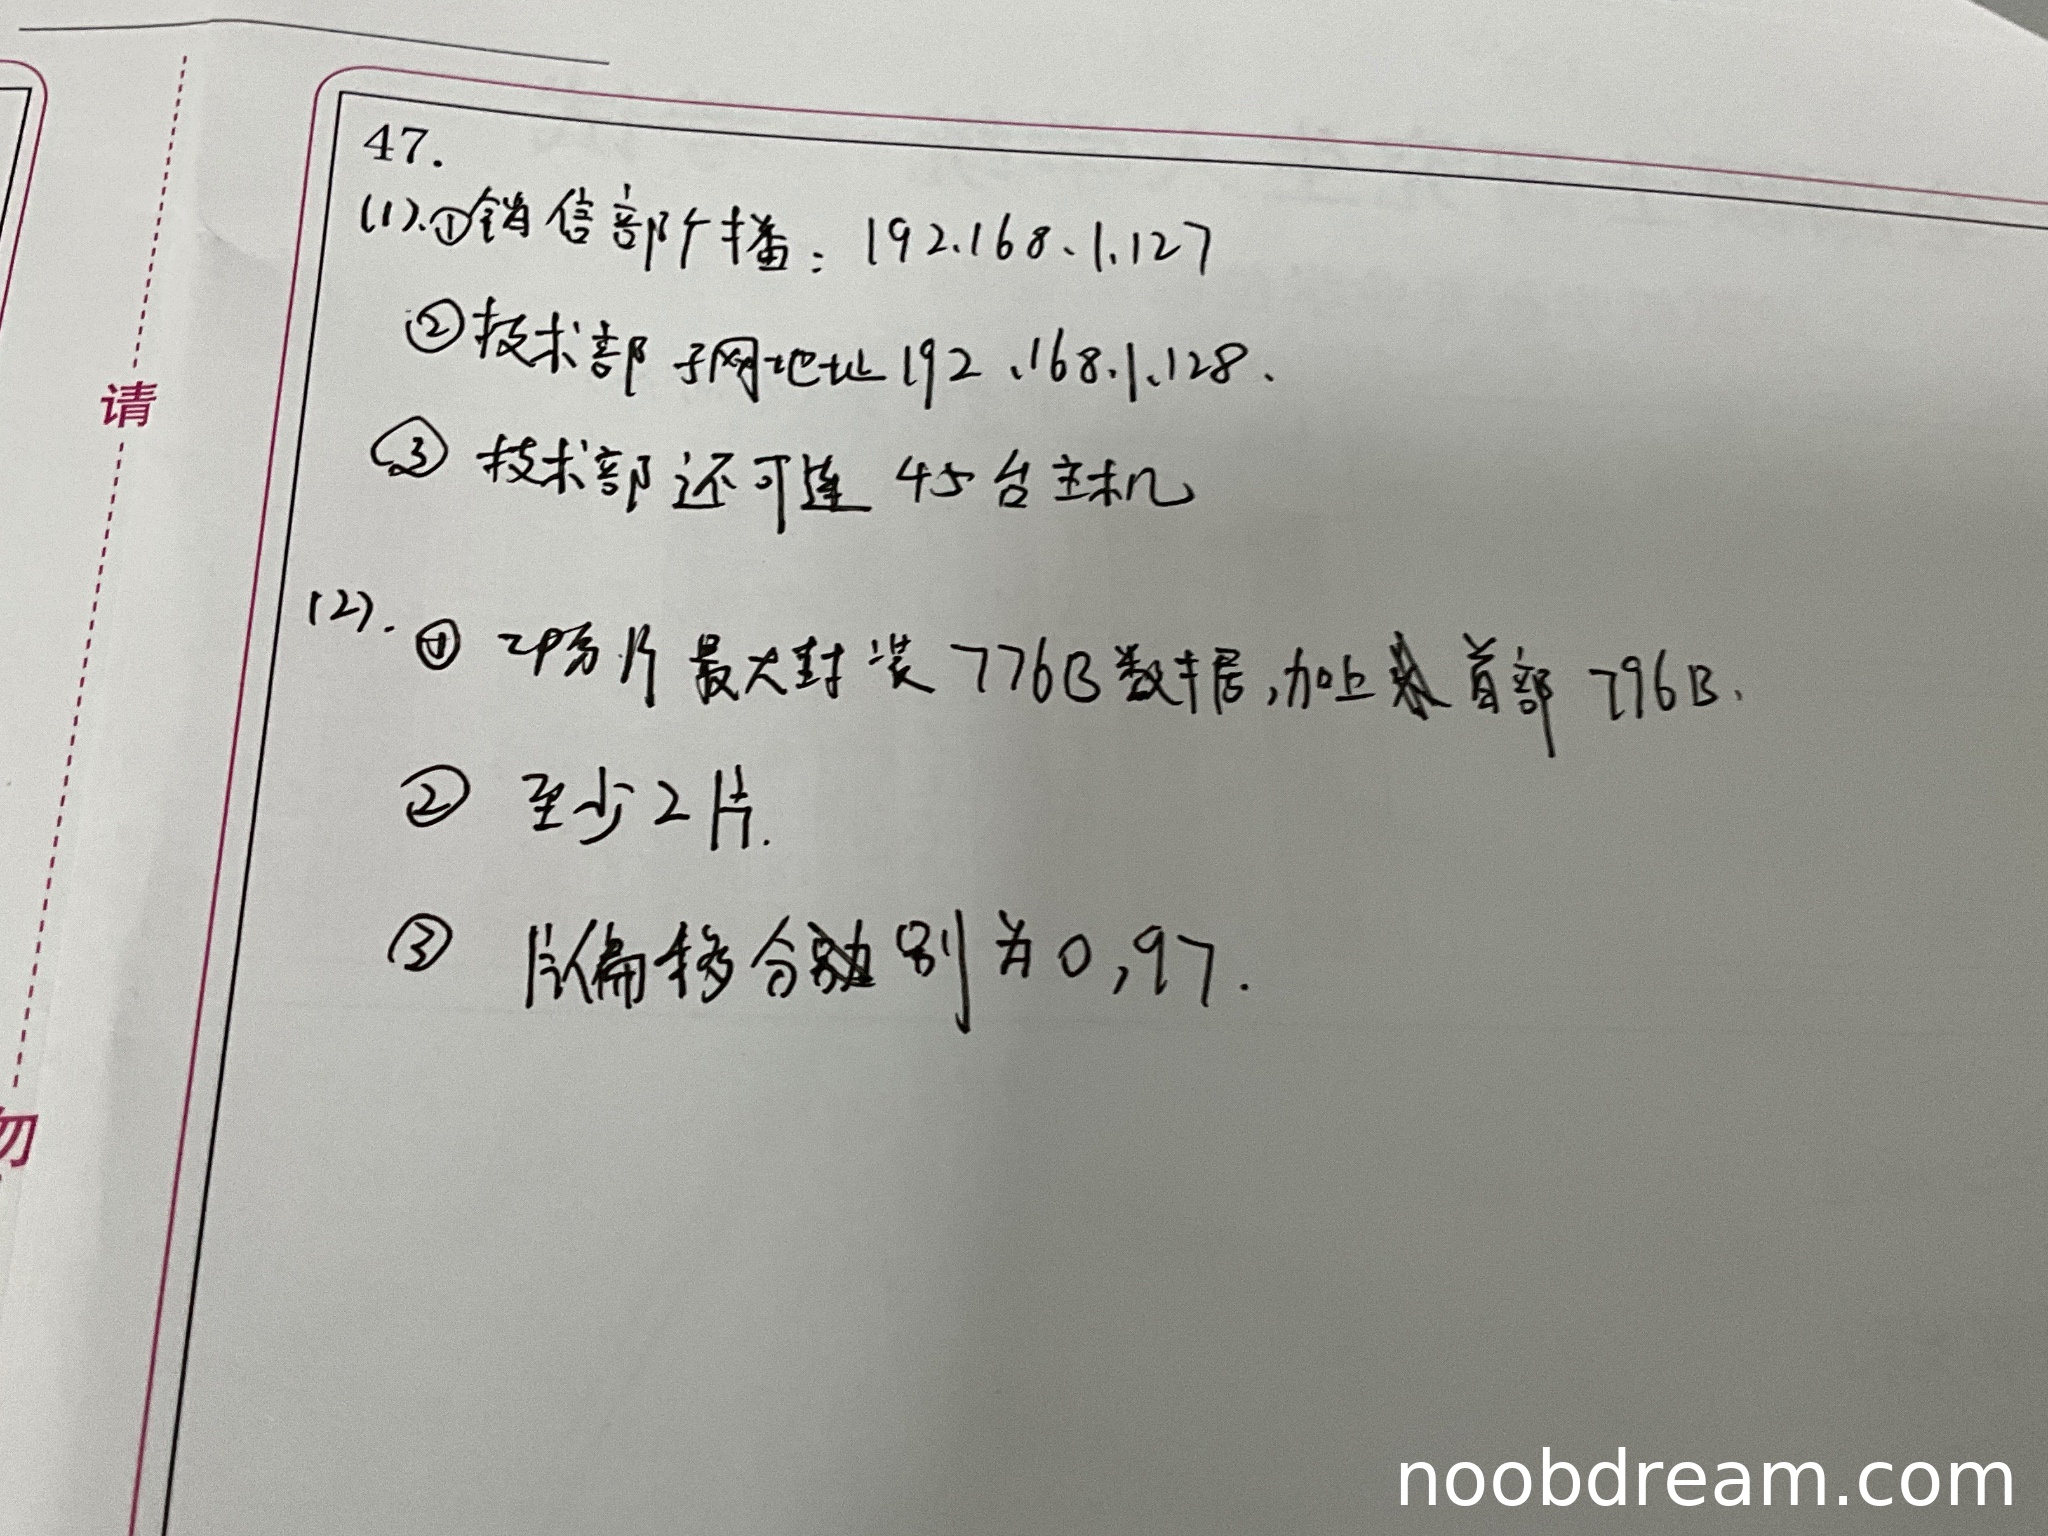 47.
(1).①销售部广播：192.168.1.127
②技术部子网地址192.168.1.128.
③技术部还可连45台主机
请
(2).①IP分片最大封装776B数据,加上首部796B.
②至少2片.
③片偏移分别为0,97.
勿
noobdream.com